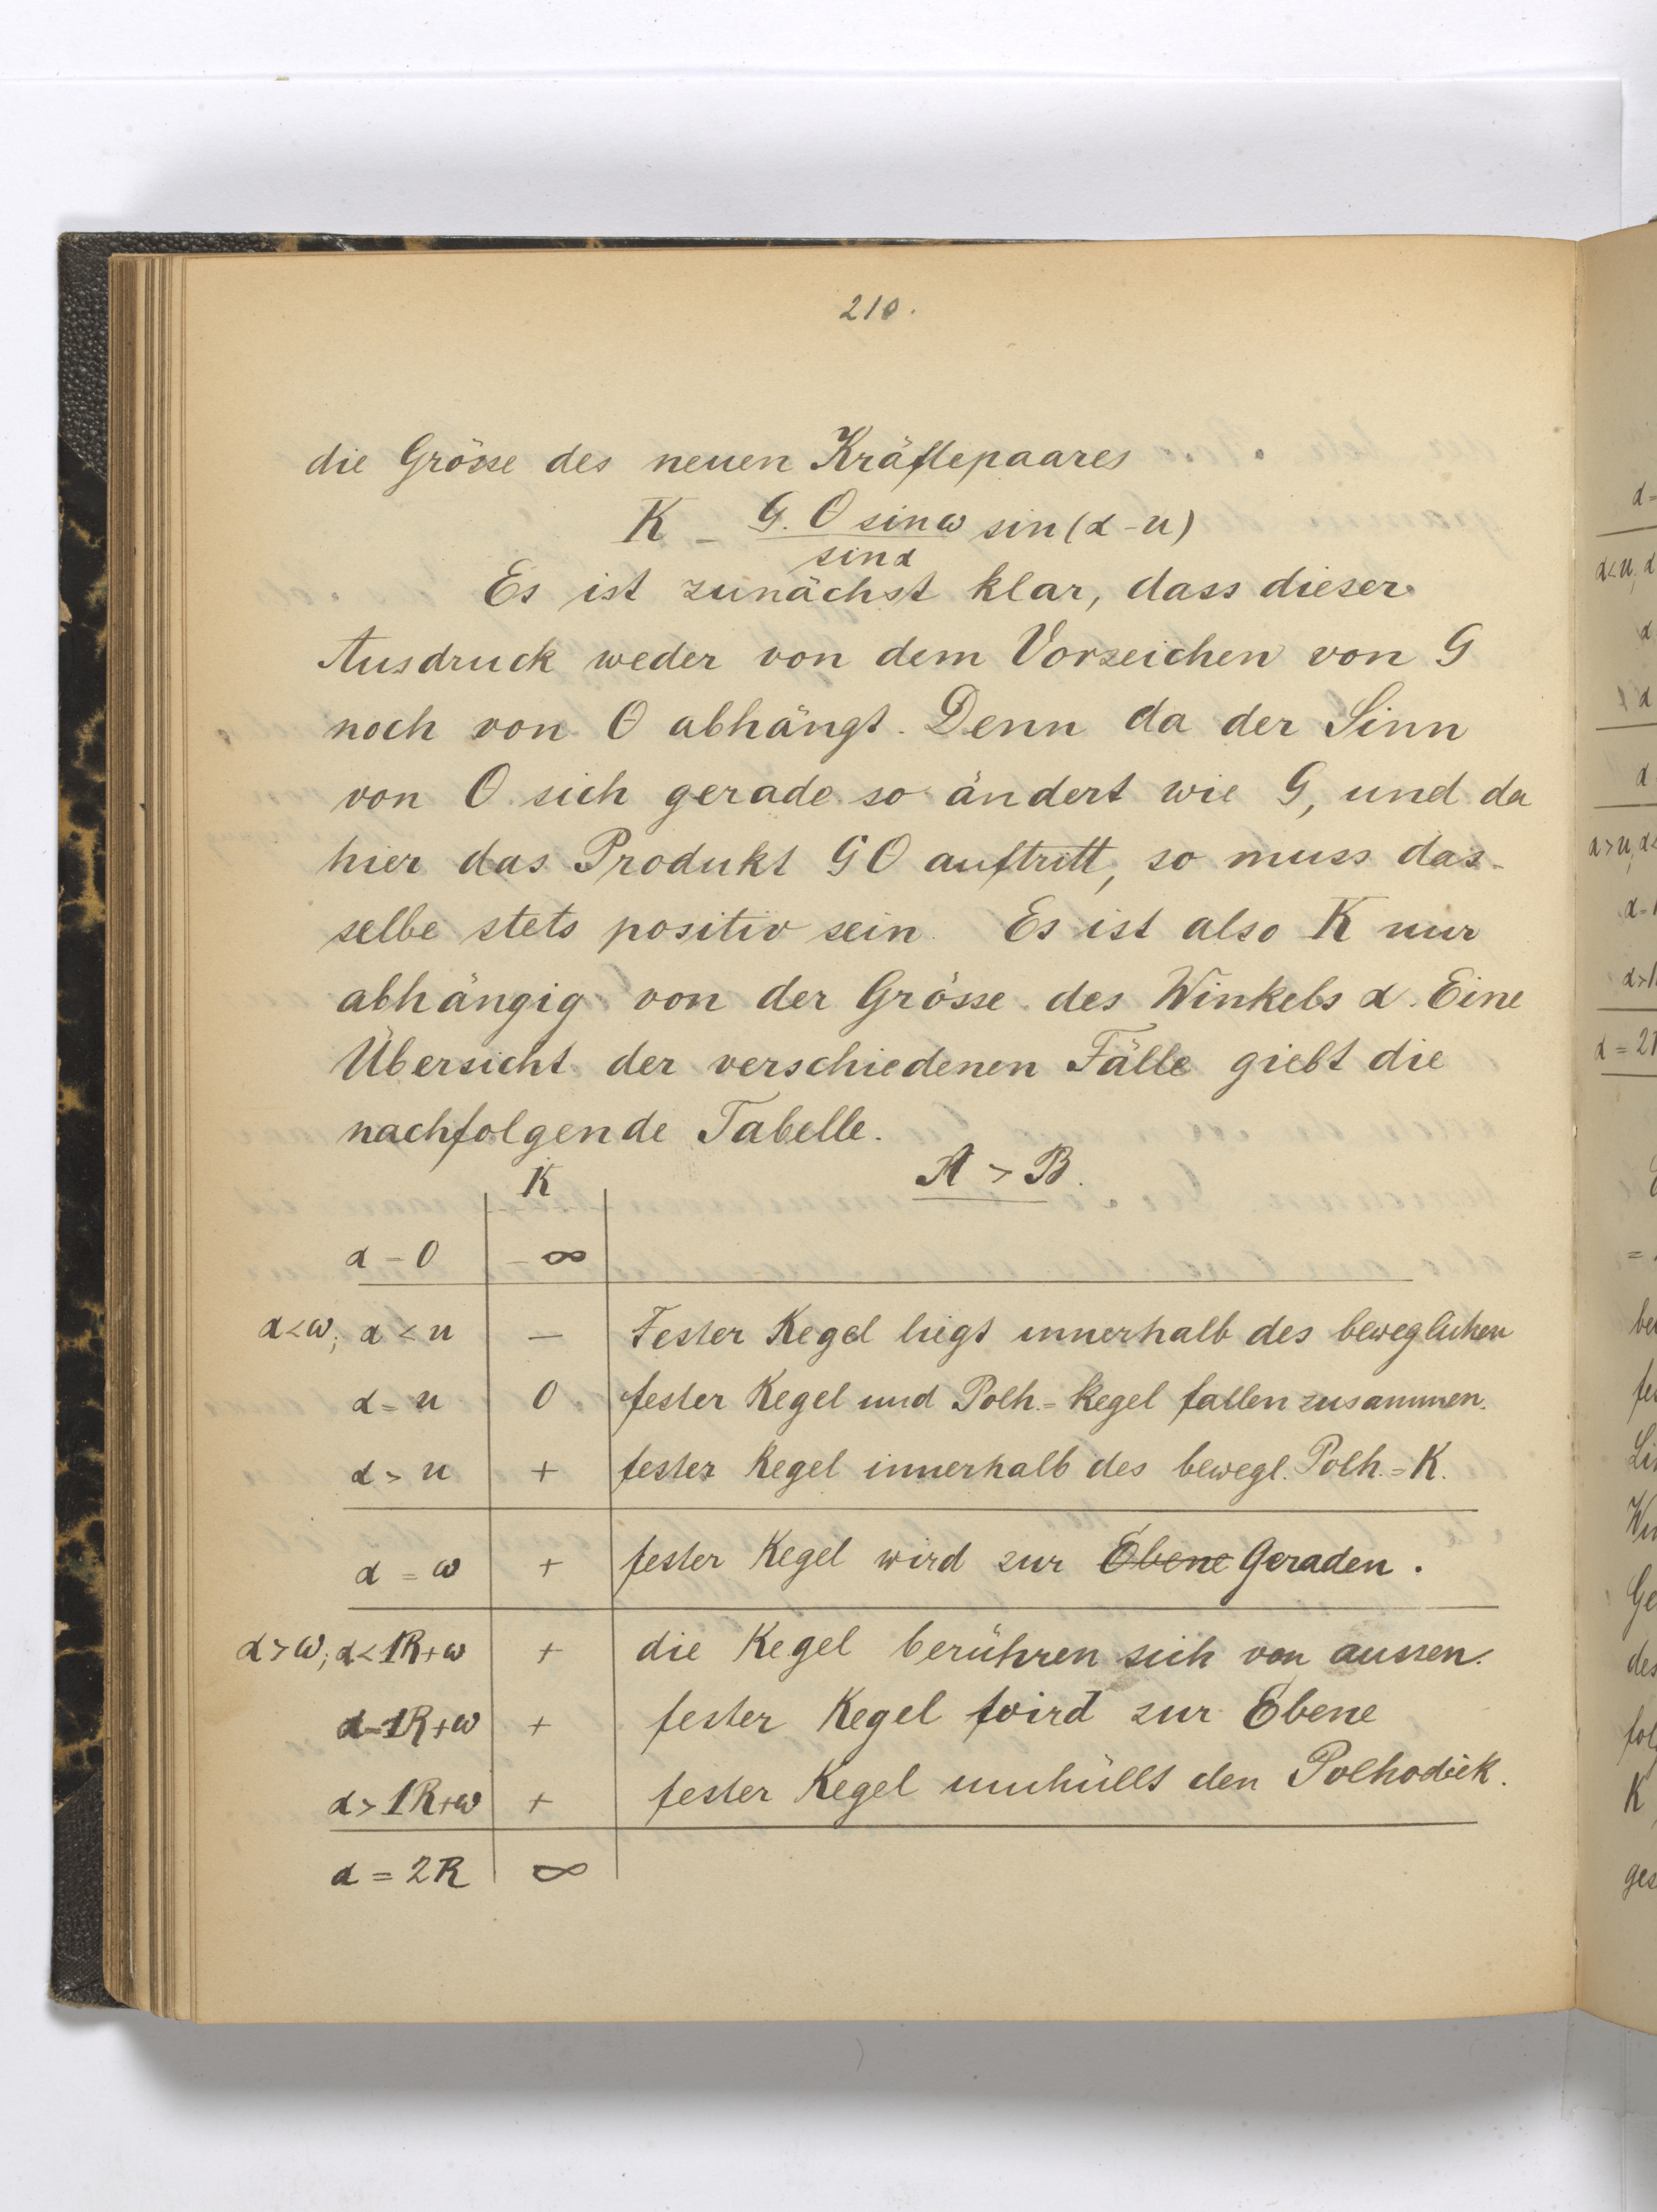 210.
die Grösse des neuen Kräftepaares
K = G. O sin ω / sin α sin (α - u)
Es ist zunächst klar, dass dieser
Ausdruck weder von dem Vorzeichen von G
noch von O abhängt. Denn da der Sinn
von O sich gerade so ändert wie G, und da
hier das Produkt GO auftritt, so muss das-
selbe stets positiv sein. Es ist also K nur
abhängig von der Grösse des Winkels α. Eine
Übersicht der verschiedenen Fälle giebt die
nachfolgende Tabelle.
K A > B.
α = 0 - ∞
α < ω; α < u — Fester Kegel liegt innerhalb des beweglichen
α = u 0 fester Kegel und Polh.=Kegel fallen zusammen.
α > u + fester Kegel innerhalb des bewegl. Polh.=K.
α = ω + fester Kegel wird zur Ebene Geraden.
α > ω; α < 1R+ω + die Kegel berühren sich von aussen.
α = 1R+ω + fester Kegel wird zur Ebene
α > 1R+ω + fester Kegel umhüllt den Polhodiek.
α = 2R ∞